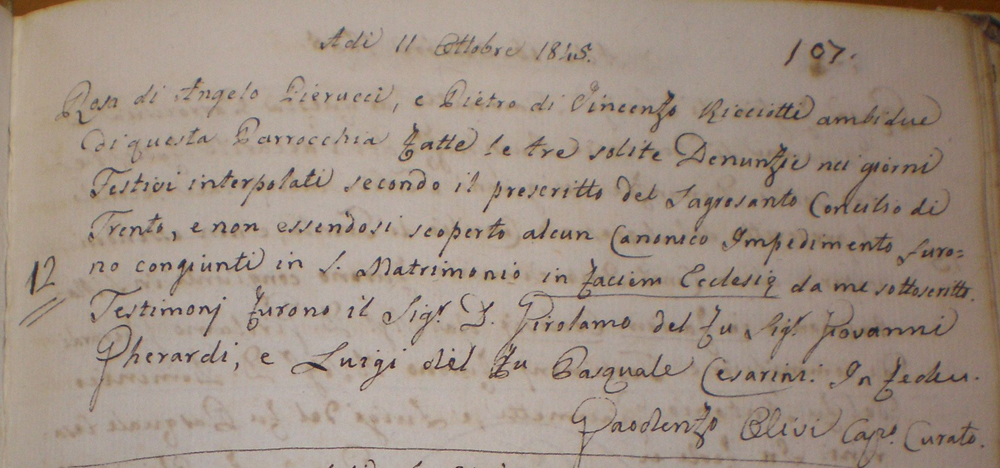 Adì 11 Ottobre 1845.
107.
Rosa di Angelo Pierucci, e Pietro di Vincenzo Ricciotti ambidue
di questa Parrocchia fatte le tre solite Denunzie nei giorni
Festivi interpolati secondo il prescritto del Sagrosanto Concilio di
Trento, e non essendosi scoperto alcun Canonico Impedimento furo=
12
no congiunti in S. Matrimonio in faciem Ecclesię da me sottoscritto.
Testimonj furono il Sigr. D. Girolamo del fu Sigr. Giovanni
Gherardi, e Luigi del fu Pasquale Cesarini. In fede
Gaudenzo Olivi Capo. Curato.